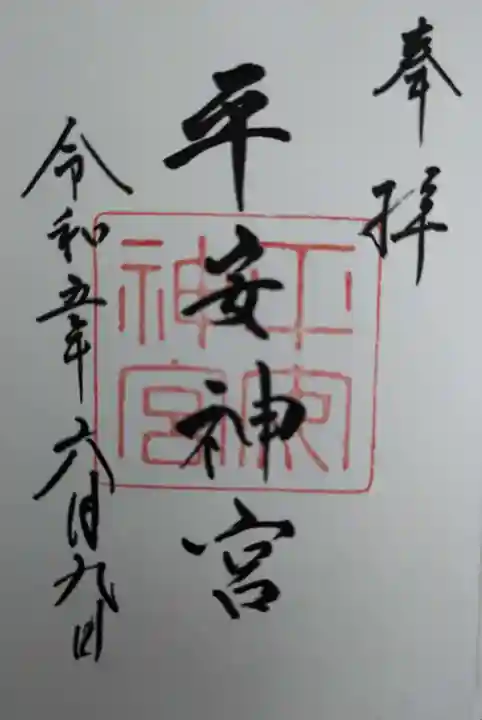 奉拝
平安神宮
令和五年六月九日
平安神宮